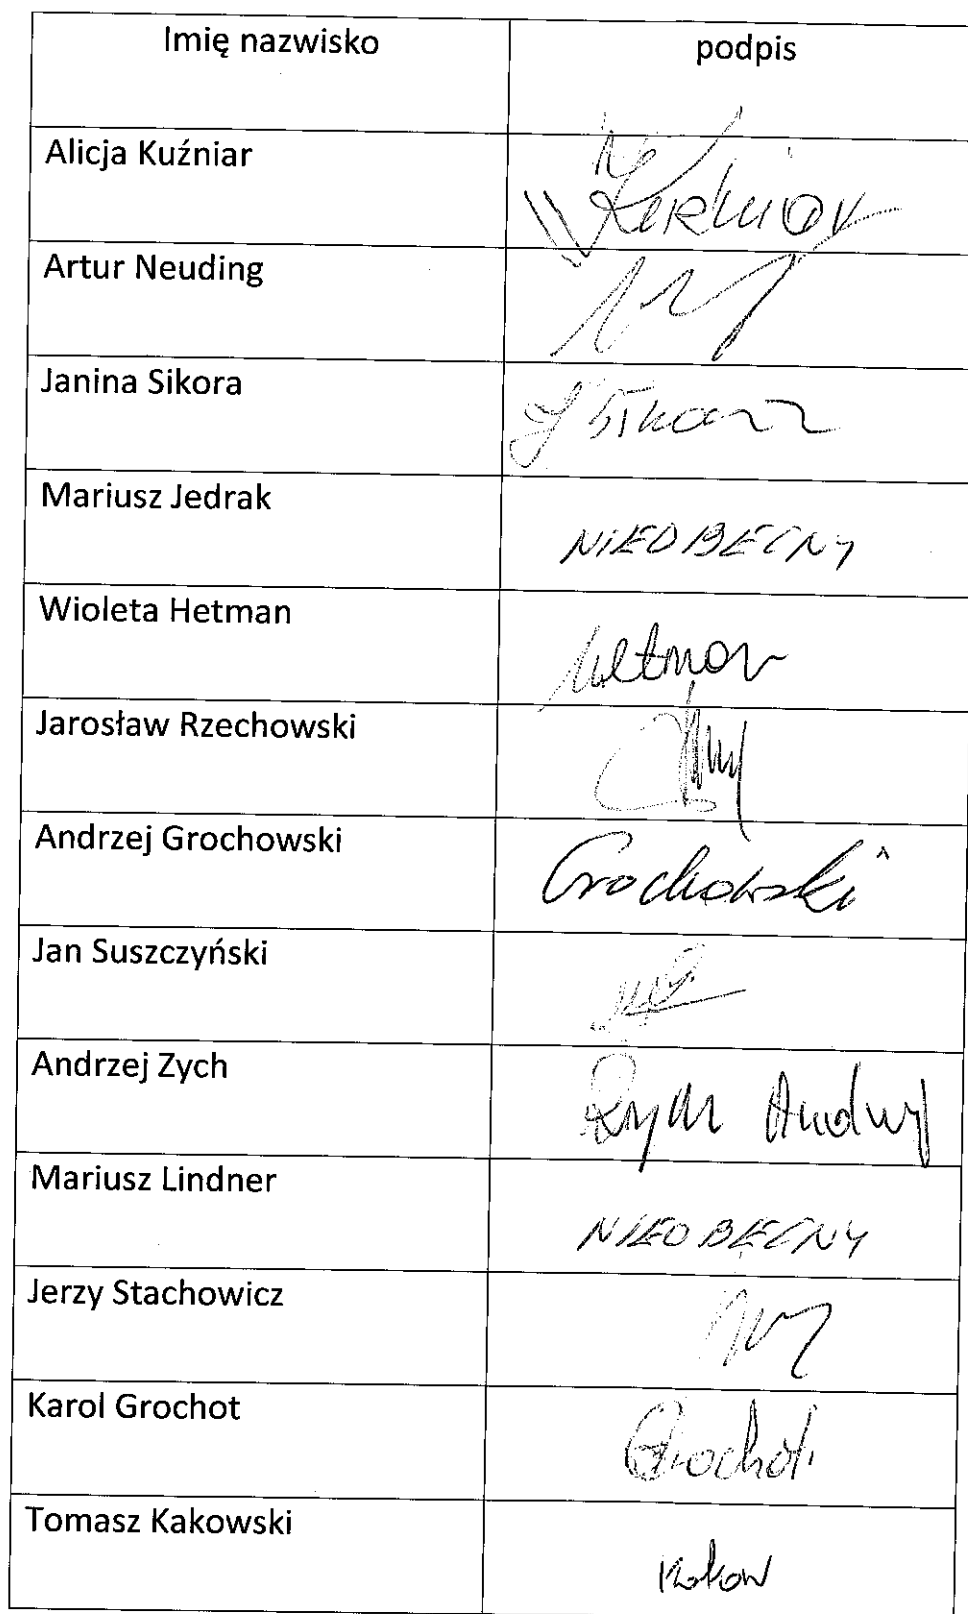 Imię nazwisko podpis
Alicja Kuźniar Kuźniar
Artur Neuding
Janina Sikora J Sikora
Mariusz Jedrak NIEOBECNY
Wioleta Hetman Hetman
Jarosław Rzechowski
Andrzej Grochowski Grochowski
Jan Suszczyński
Andrzej Zych Zych Andrzej
Mariusz Lindner NIEOBECNY
Jerzy Stachowicz
Karol Grochot Grochot
Tomasz Kakowski Kakow